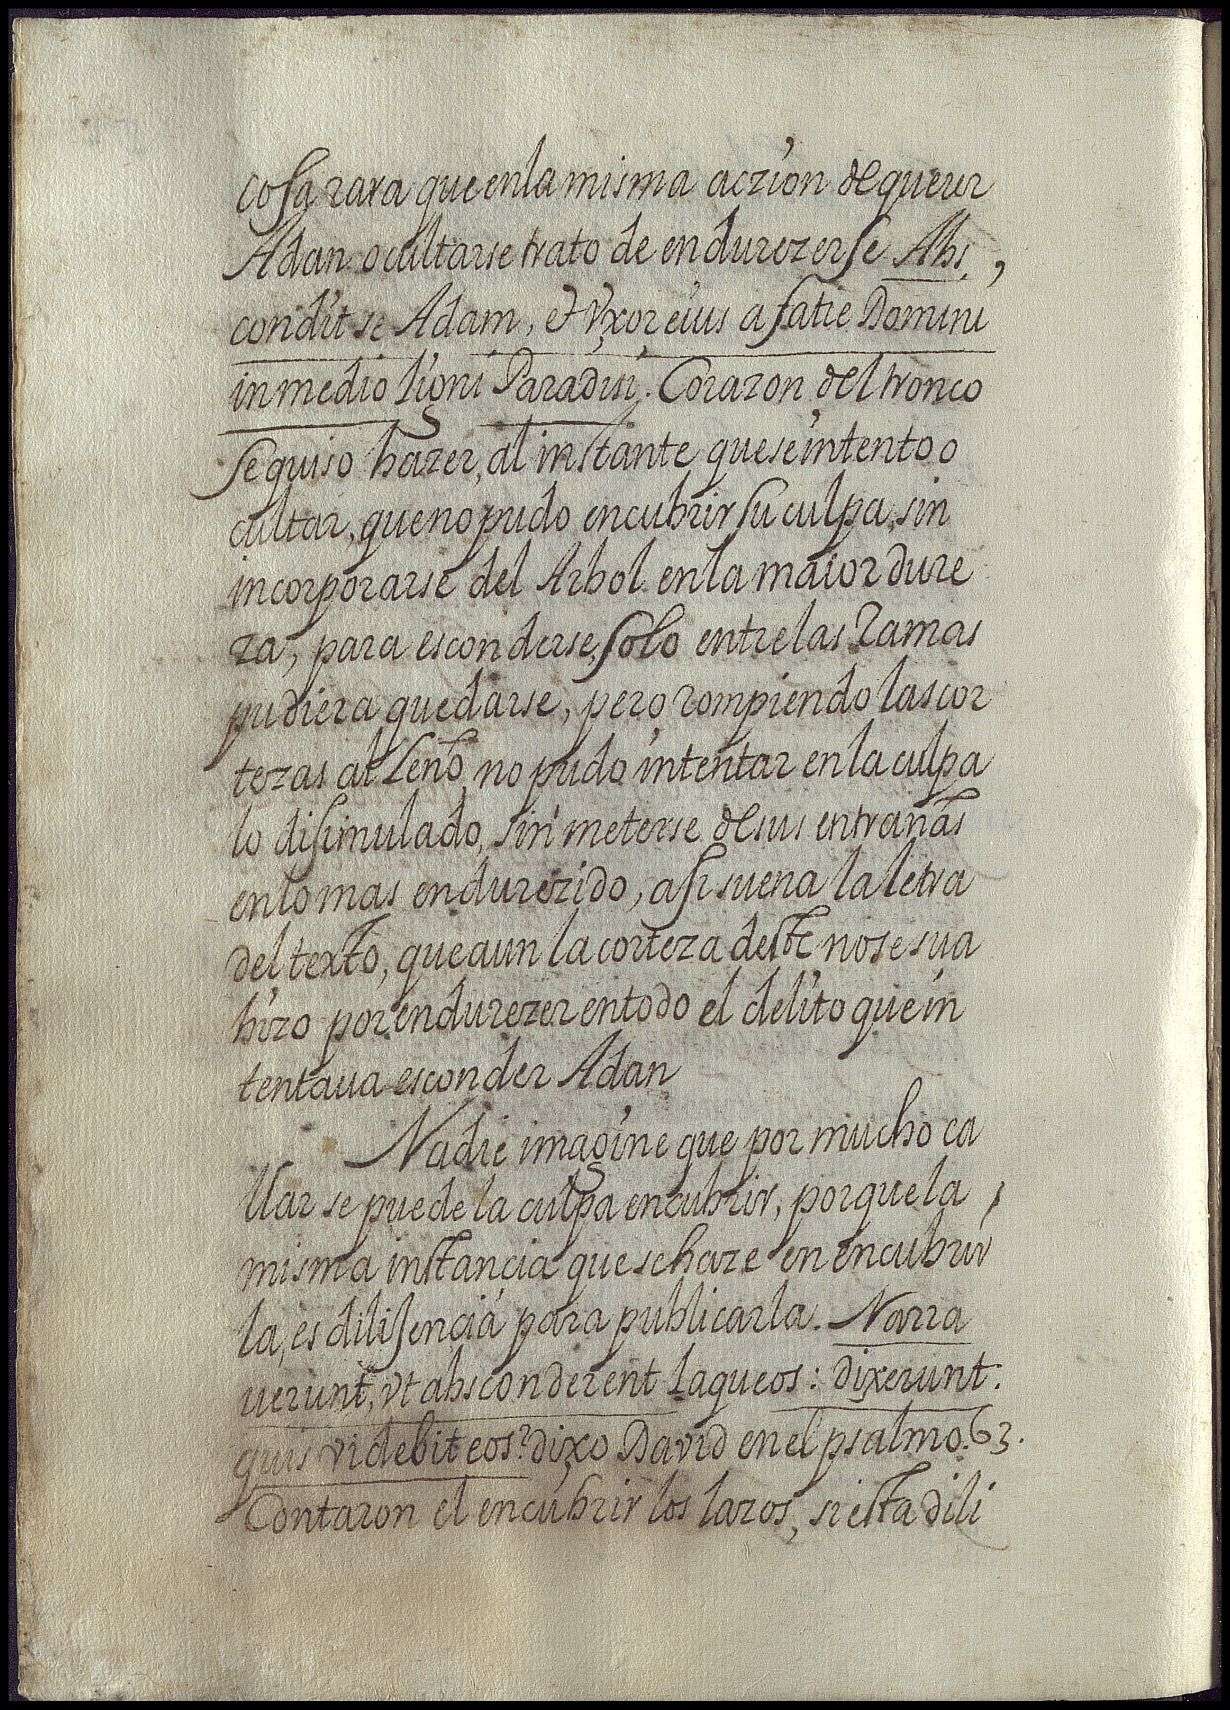 cosa rara que en la misma aczion de querer
Adan ocultarse trato de endurezerse Abs,
condit se Adam, et vxor eius a fatie Domini
in medio ligni Paradisi. Corazon del tronco
se quiso hazer, al instante que se intento o
cultar, que no pudo encubrir su culpa, sin
incorporarse del Arbol en la maior dure
za, para esconderse, solo entre las Ramas
pudiera quedarse, pero rompiendo las cor
tezas al Leño, no pudo intentar en la culpa
lo disimulado, sin meterse de sus entrañas
en lo mas endurezido, asi suena la letra
del texto, que aun la corteza deste no se sua
hizo por endurezer en todo el delito que in
tentaua esconder Adan
Nadie imagine que por mucho ca
llar se puede la culpa encubrir, porque la
misma instancia que se haze en encubrir
la, es diligencia para publicarla. Narra
uerunt, vt absconderent laqueos: dixerunt:
quis videbit eos? dixo David en el psalmo. 63.
Contaron el encubrir los lazos, si esta dili